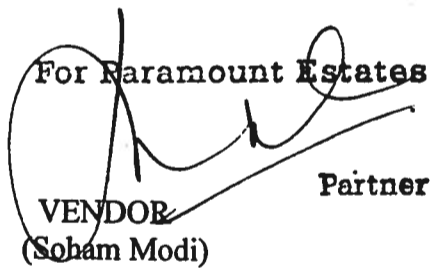 For Paramount Estates
Partner
VENDOR
(Soham Modi)